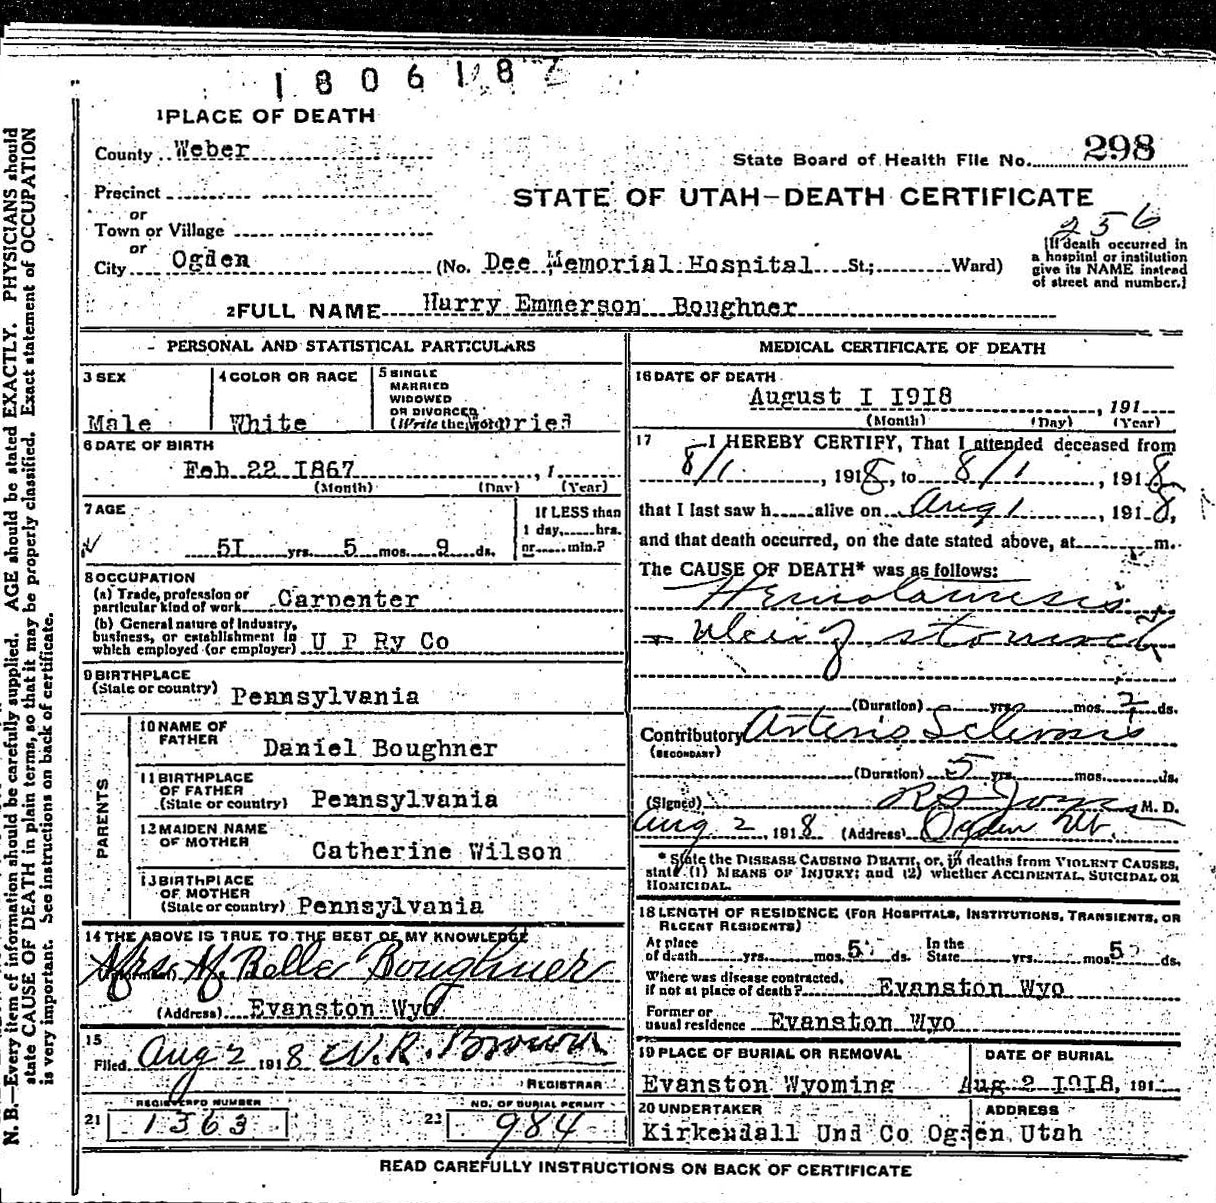 1806182
1 PLACE OF DEATH
County Weber
State Board of Health File No. 298
Precinct
STATE OF UTAH—DEATH CERTIFICATE
or
Town or Village
256
or
City Ogden (No. Dee Memorial Hospital St.; Ward)
[If death occurred in
a hospital or institution
give its NAME instead
of street and number.]
2 FULL NAME Harry Emmerson Boughner
PERSONAL AND STATISTICAL PARTICULARS
3 SEX
Male
4 COLOR OR RACE
White
5 SINGLE
MARRIED
WIDOWED
OR DIVORCED
(Write the word) Married
6 DATE OF BIRTH
Feb 22 1867, 1
(Month) (Day) (Year)
7 AGE
51 yrs. 5 mos. 9 ds.
If LESS than
1 day, hrs.
or min.?
8 OCCUPATION
(a) Trade, profession or
particular kind of work Carpenter
(b) General nature of Industry,
business, or establishment in
which employed (or employer) U P Ry Co
9 BIRTHPLACE
(State or country) Pennsylvania
PARENTS
10 NAME OF
FATHER Daniel Boughner
11 BIRTHPLACE
OF FATHER
(State or country) Pennsylvania
12 MAIDEN NAME
OF MOTHER Catherine Wilson
13 BIRTHPLACE
OF MOTHER
(State or country) Pennsylvania
14 THE ABOVE IS TRUE TO THE BEST OF MY KNOWLEDGE
Mrs M. Belle Boughner
(Address) Evanston Wyo
15
Filed Aug 2 1918 W. R. Brown
REGISTRAR
REGISTERED NUMBER
21 1363
NO. OF BURIAL PERMIT
22 984
MEDICAL CERTIFICATE OF DEATH
16 DATE OF DEATH
August 1 1918, 191
(Month) (Day) (Year)
17 I HEREBY CERTIFY, That I attended deceased from
8/1, 1918, to 8/1, 1918,
that I last saw h alive on Aug 1, 1918,
and that death occurred, on the date stated above, at m.
The CAUSE OF DEATH* was as follows:
Hematamesis
Ulcer of stomach
(Duration) yrs mos. 7 ds.
Contributory Arterio Sclerosis
(SECONDARY)
(Duration) 5 yrs. mos. ds.
(Signed) M. D.
Aug 2, 1918 (Address) Ogden Ut.
* State the DISEASE CAUSING DEATH, or, in deaths from VIOLENT CAUSES,
state (1) MEANS OF INJURY; and (2) whether ACCIDENTAL, SUICIDAL OR
HOMICIDAL.
18 LENGTH OF RESIDENCE (FOR HOSPITALS, INSTITUTIONS, TRANSIENTS, OR
RECENT RESIDENTS)
At place
of death yrs. mos. 5 ds.
In the
State yrs. mos 5 ds.
Where was disease contracted,
if not at place of death? Evanston Wyo
Former or
usual residence Evanston Wyo
19 PLACE OF BURIAL OR REMOVAL
Evanston Wyoming
DATE OF BURIAL
Aug 2 1918, 191
20 UNDERTAKER
Kirkendall Und Co
ADDRESS
Ogden Utah
READ CAREFULLY INSTRUCTIONS ON BACK OF CERTIFICATE
N. B.—Every item of information should be carefully supplied. AGE should be stated EXACTLY. PHYSICIANS should
state CAUSE OF DEATH in plain terms, so that it may be properly classified. Exact statement of OCCUPATION
is very important. See instructions on back of certificate.